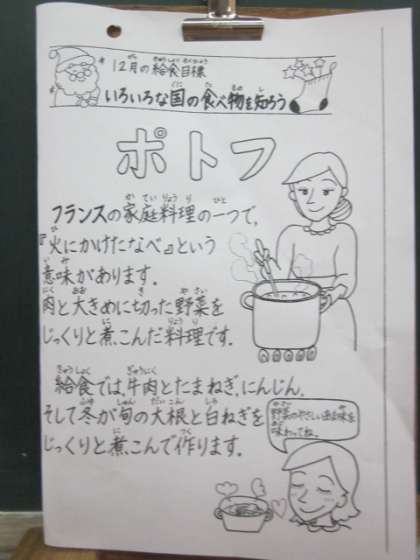 12月の給食目標
いろいろな国の食べ物を知ろう
ポトフ
フランスの家庭料理の一つで、
『火にかけたなべ』という
意味があります。
肉と大きめに切った野菜を
じっくりと煮こんだ料理です。
給食では、牛肉とたまねぎ、にんじん、
そして冬が旬の大根と白ねぎを
じっくりと煮こんで作ります。
野菜のやさしい甘味を
味わってね。